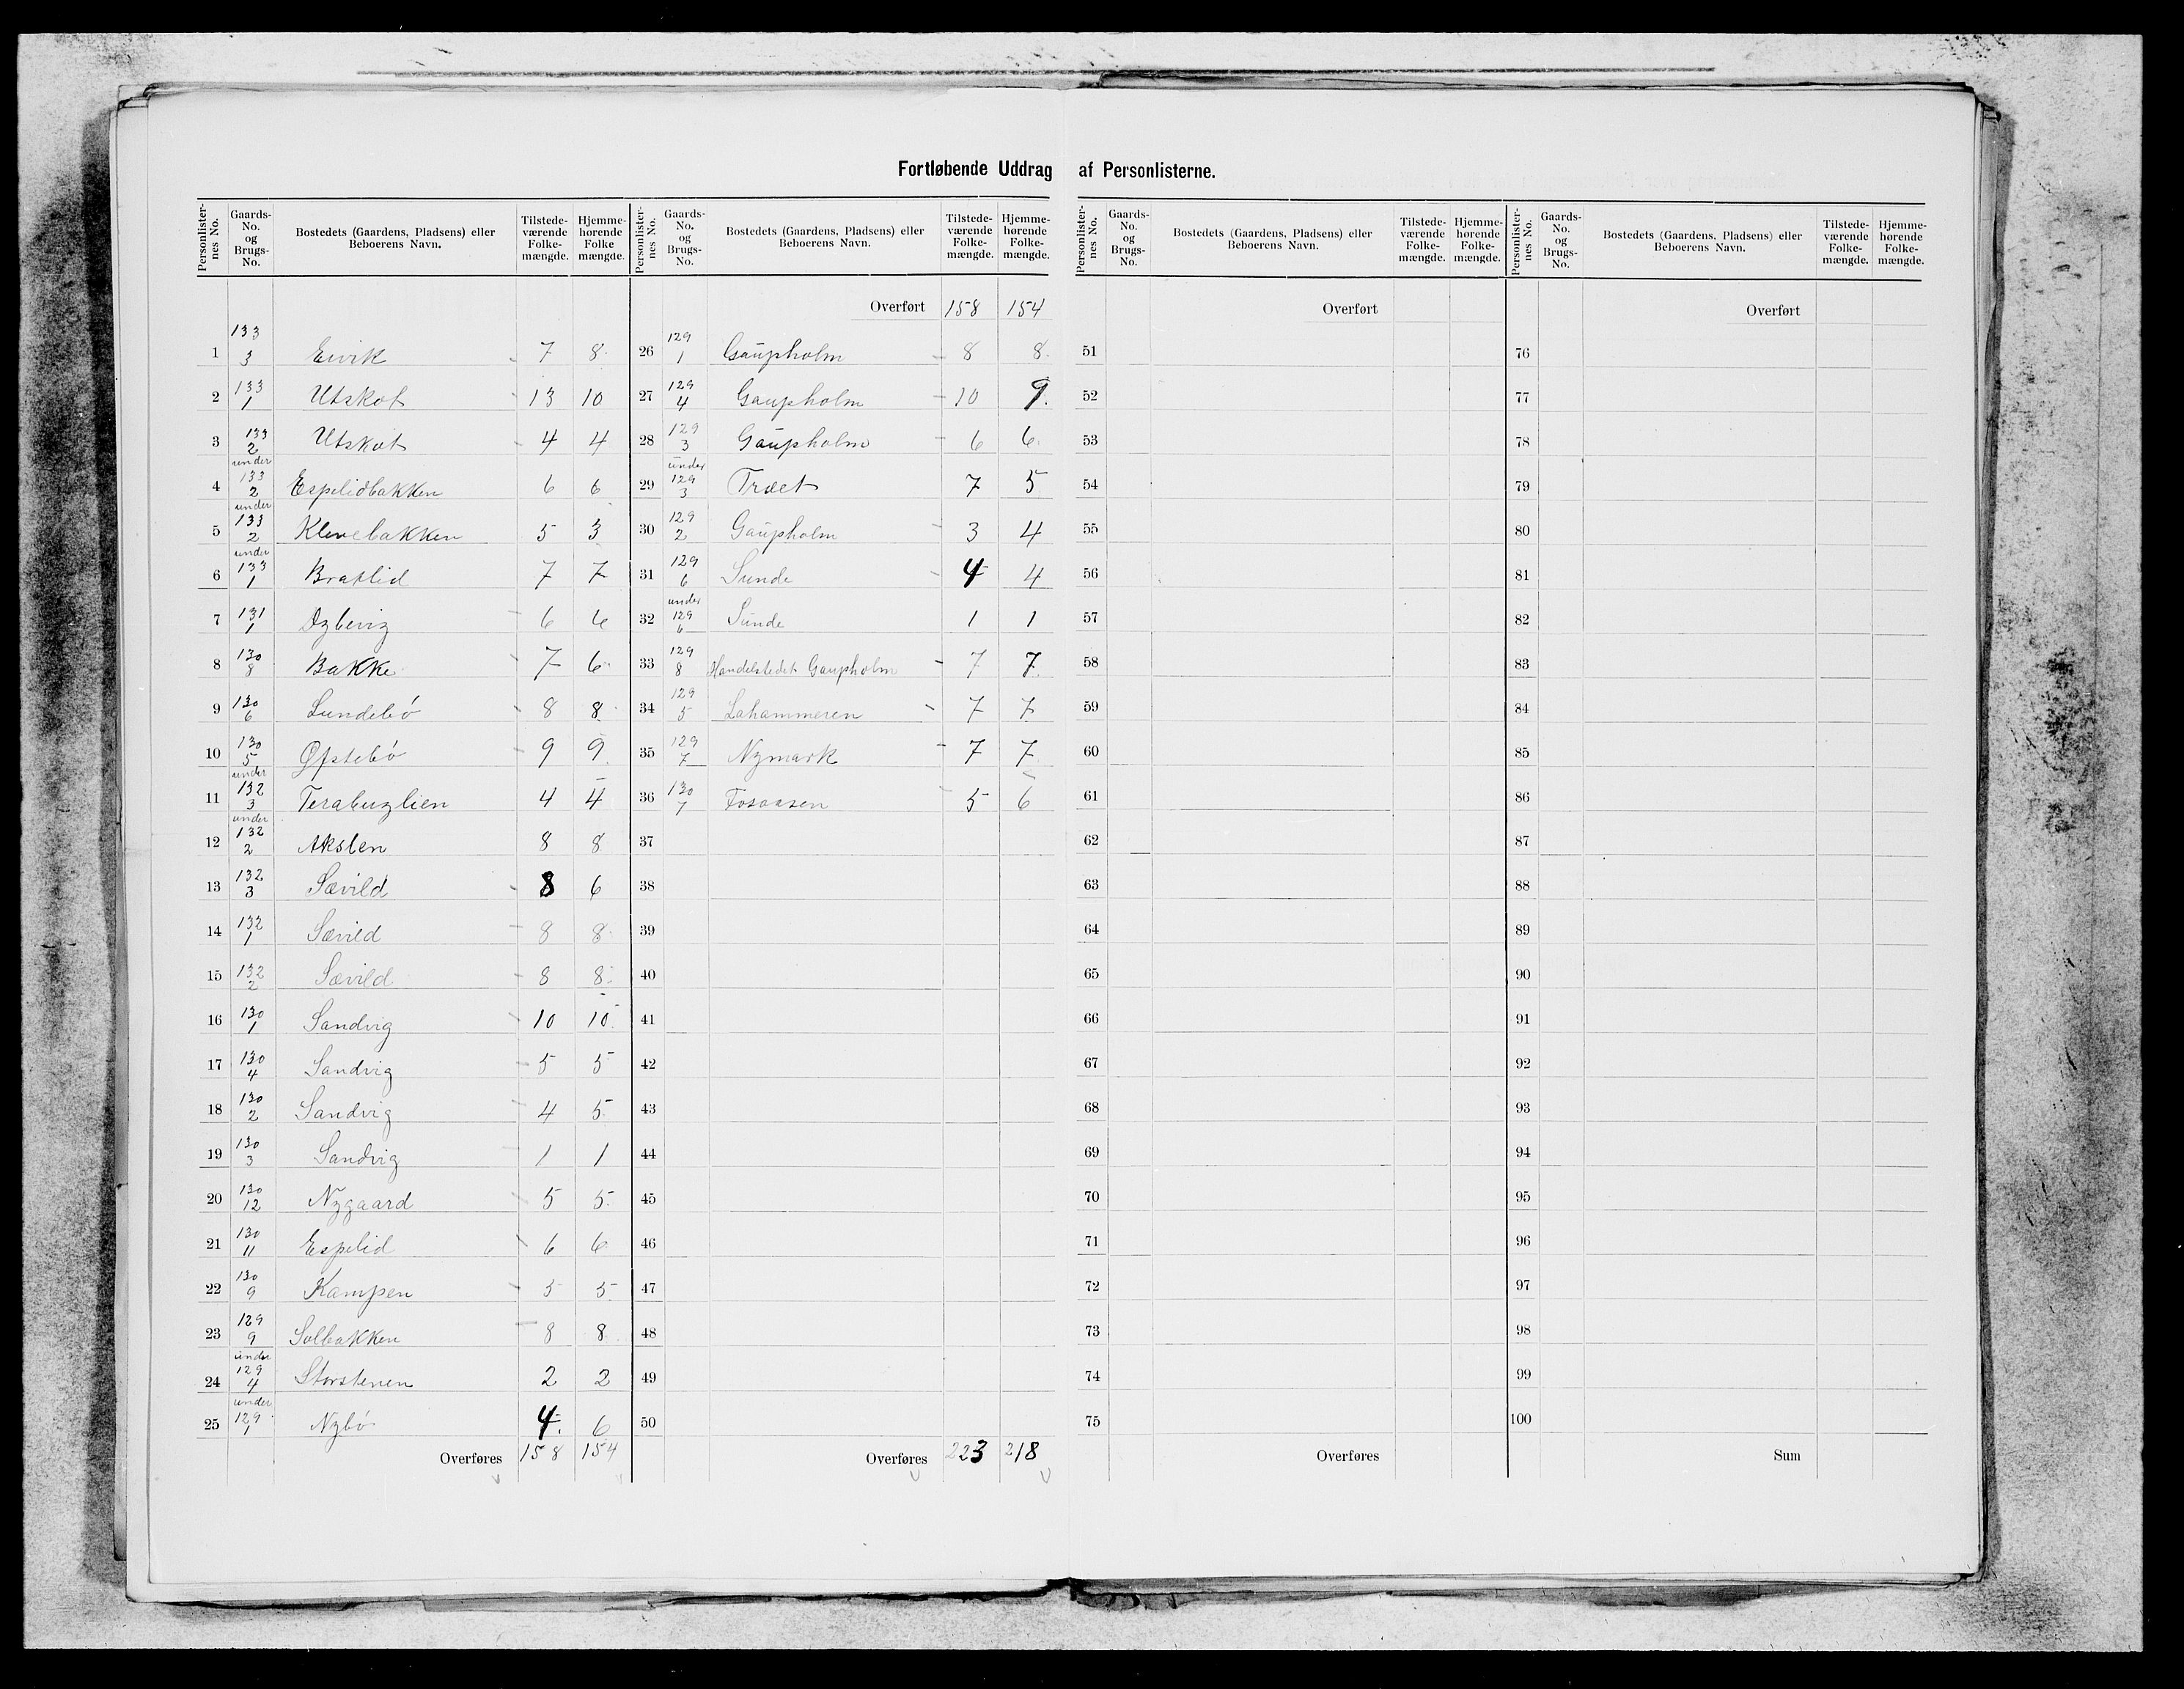 Fortløbende Uddrag af Personlisterne.
Personlisternes No. Gaards-No. og Brugs-No. Bostedets (Gaardens, Pladsens) eller Beboerens Navn. Tilstedeværende Folkemængde. Hjemmehørende Folke mængde.
1 133 3 Eivik 7 8
2 133 1 Utskot 13 10
3 133 2 Utskot 4 4
4 under 133 2 Espelidbakken 6 6
5 under 133 2 Klevebakken 5 3
6 under 133 1 Braklid 7 7
7 131 1 6 6
8 130 8 Bakke 7 6
9 130 6 Lundebø 8 8
10 130 5 Øfstebø 9 9
11 under 132 3 4 4
12 under 132 2 Akslen 8 8
13 132 3 Sævild 8 6
14 132 1 Sævild 8 8
15 132 2 Sævild 8 8
16 130 1 Sandvig 10 10
17 130 4 Sandvig 5 5
18 130 2 Sandvig 4 5
19 130 3 Sandvig 1 1
20 130 12 Nygaard 5 5
21 130 11 Espelid 6 6
22 130 9 Kampen 5 5
23 129 9 Solbakken 8 8
24 under 129 4 Storstenen 2 2
25 under 129 1 Nybø 4 6
Overføres 158 154
Personlisternes No. Gaards-No. og Brugs-No. Bostedets (Gaardens, Pladsens) eller Beboerens Navn. Tilstedeværende Folkemængde. Hjemmehørende Folkemængde.
Overført 158 154
26 129 1 Gaupholm 8 8
27 129 4 Gaupholm 10 9
28 129 3 Gaupholm 6 6
29 under 129 3 Træet 7 5
30 129 2 Gaupholm 3 4
31 129 6 Sunde 4 4
32 under 129 6 Sunde 1 1
33 129 8 Handelstedet Gaupholm 7 7
34 129 5 Lahammeren 7 7
35 129 7 Nymark 7 7
36 130 7 Fosaasen 5 6
37
38
39
40
41
42
43
44
45
46
47
48
49
50
Overføres 223 218
Personlisternes No. Gaards-No. og Brugs-No. Bostedets (Gaardens, Pladsens) eller Beboerens Navn. Tilstedeværende Folkemængde. Hjemmehørende Folkemængde.
Overført
51
52
53
54
55
56
57
58
59
60
61
62
63
64
65
66
67
68
69
70
71
72
73
74
75
Overføres
Personlisternes No. Gaards-No. og Brugs-No. Bostedets (Gaardens, Pladsens) eller Beboerens Navn. Tilstedeværende Folkemængde. Hjemmehørende Folkemængde.
Overført
76
77
78
79
80
81
82
83
84
85
86
87
88
89
90
91
92
93
94
95
96
97
98
99
100
Sum